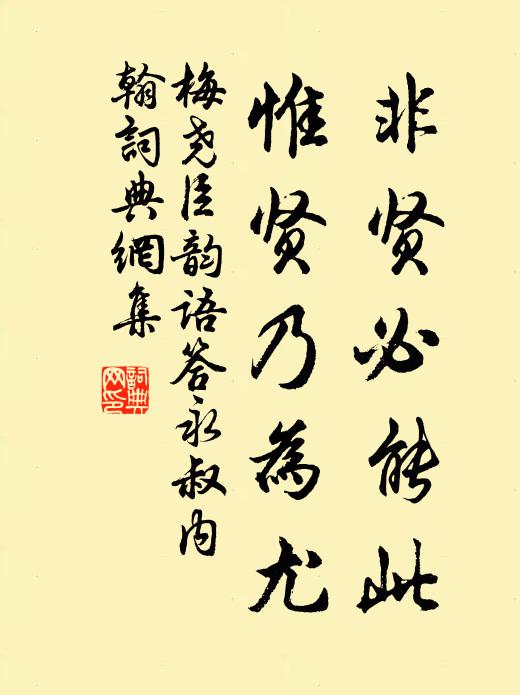 非贤必能此
惟贤乃為尤
梅尧臣韵语答永叔内
翰詞典網集
詞典
网印